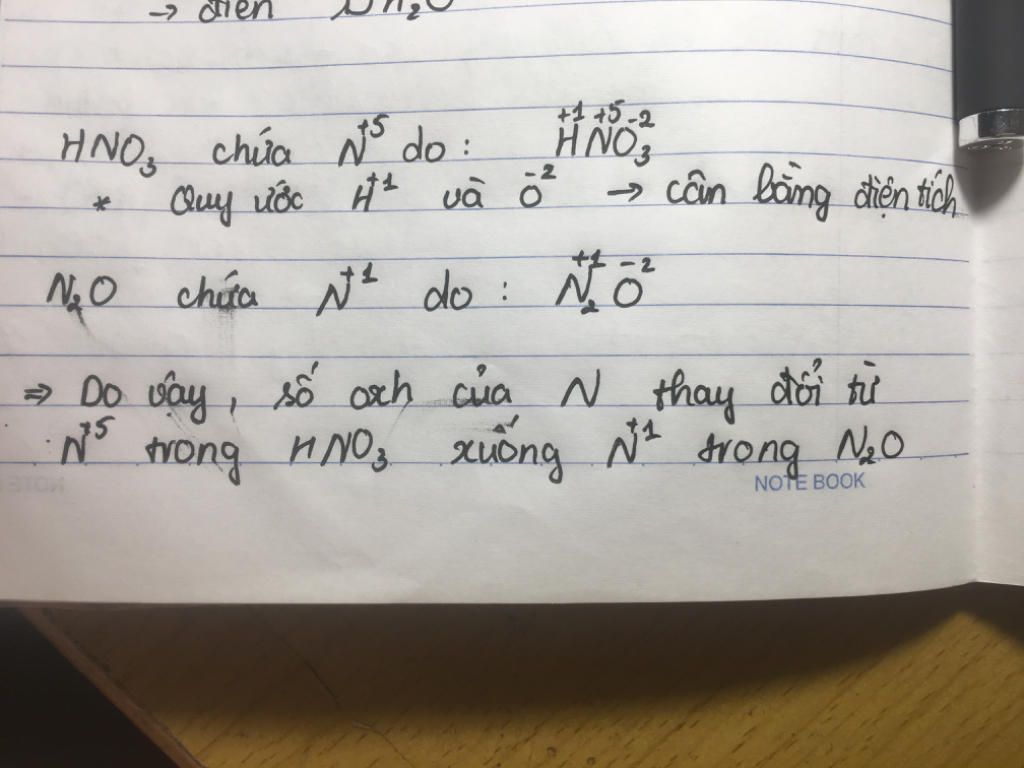 → điền
HNO₃ chứa N⁺⁵ do : H⁺¹N⁺⁵O₃⁻²
* Quy ước H⁺¹ và O⁻² → cân bằng điện tích
N₂O chứa N⁺¹ do : N₂⁺¹O⁻²
⇒ Do vậy, số oxh của N thay đổi từ
N⁺⁵ trong HNO₃ xuống N⁺¹ trong N₂O
NOTE BOOK